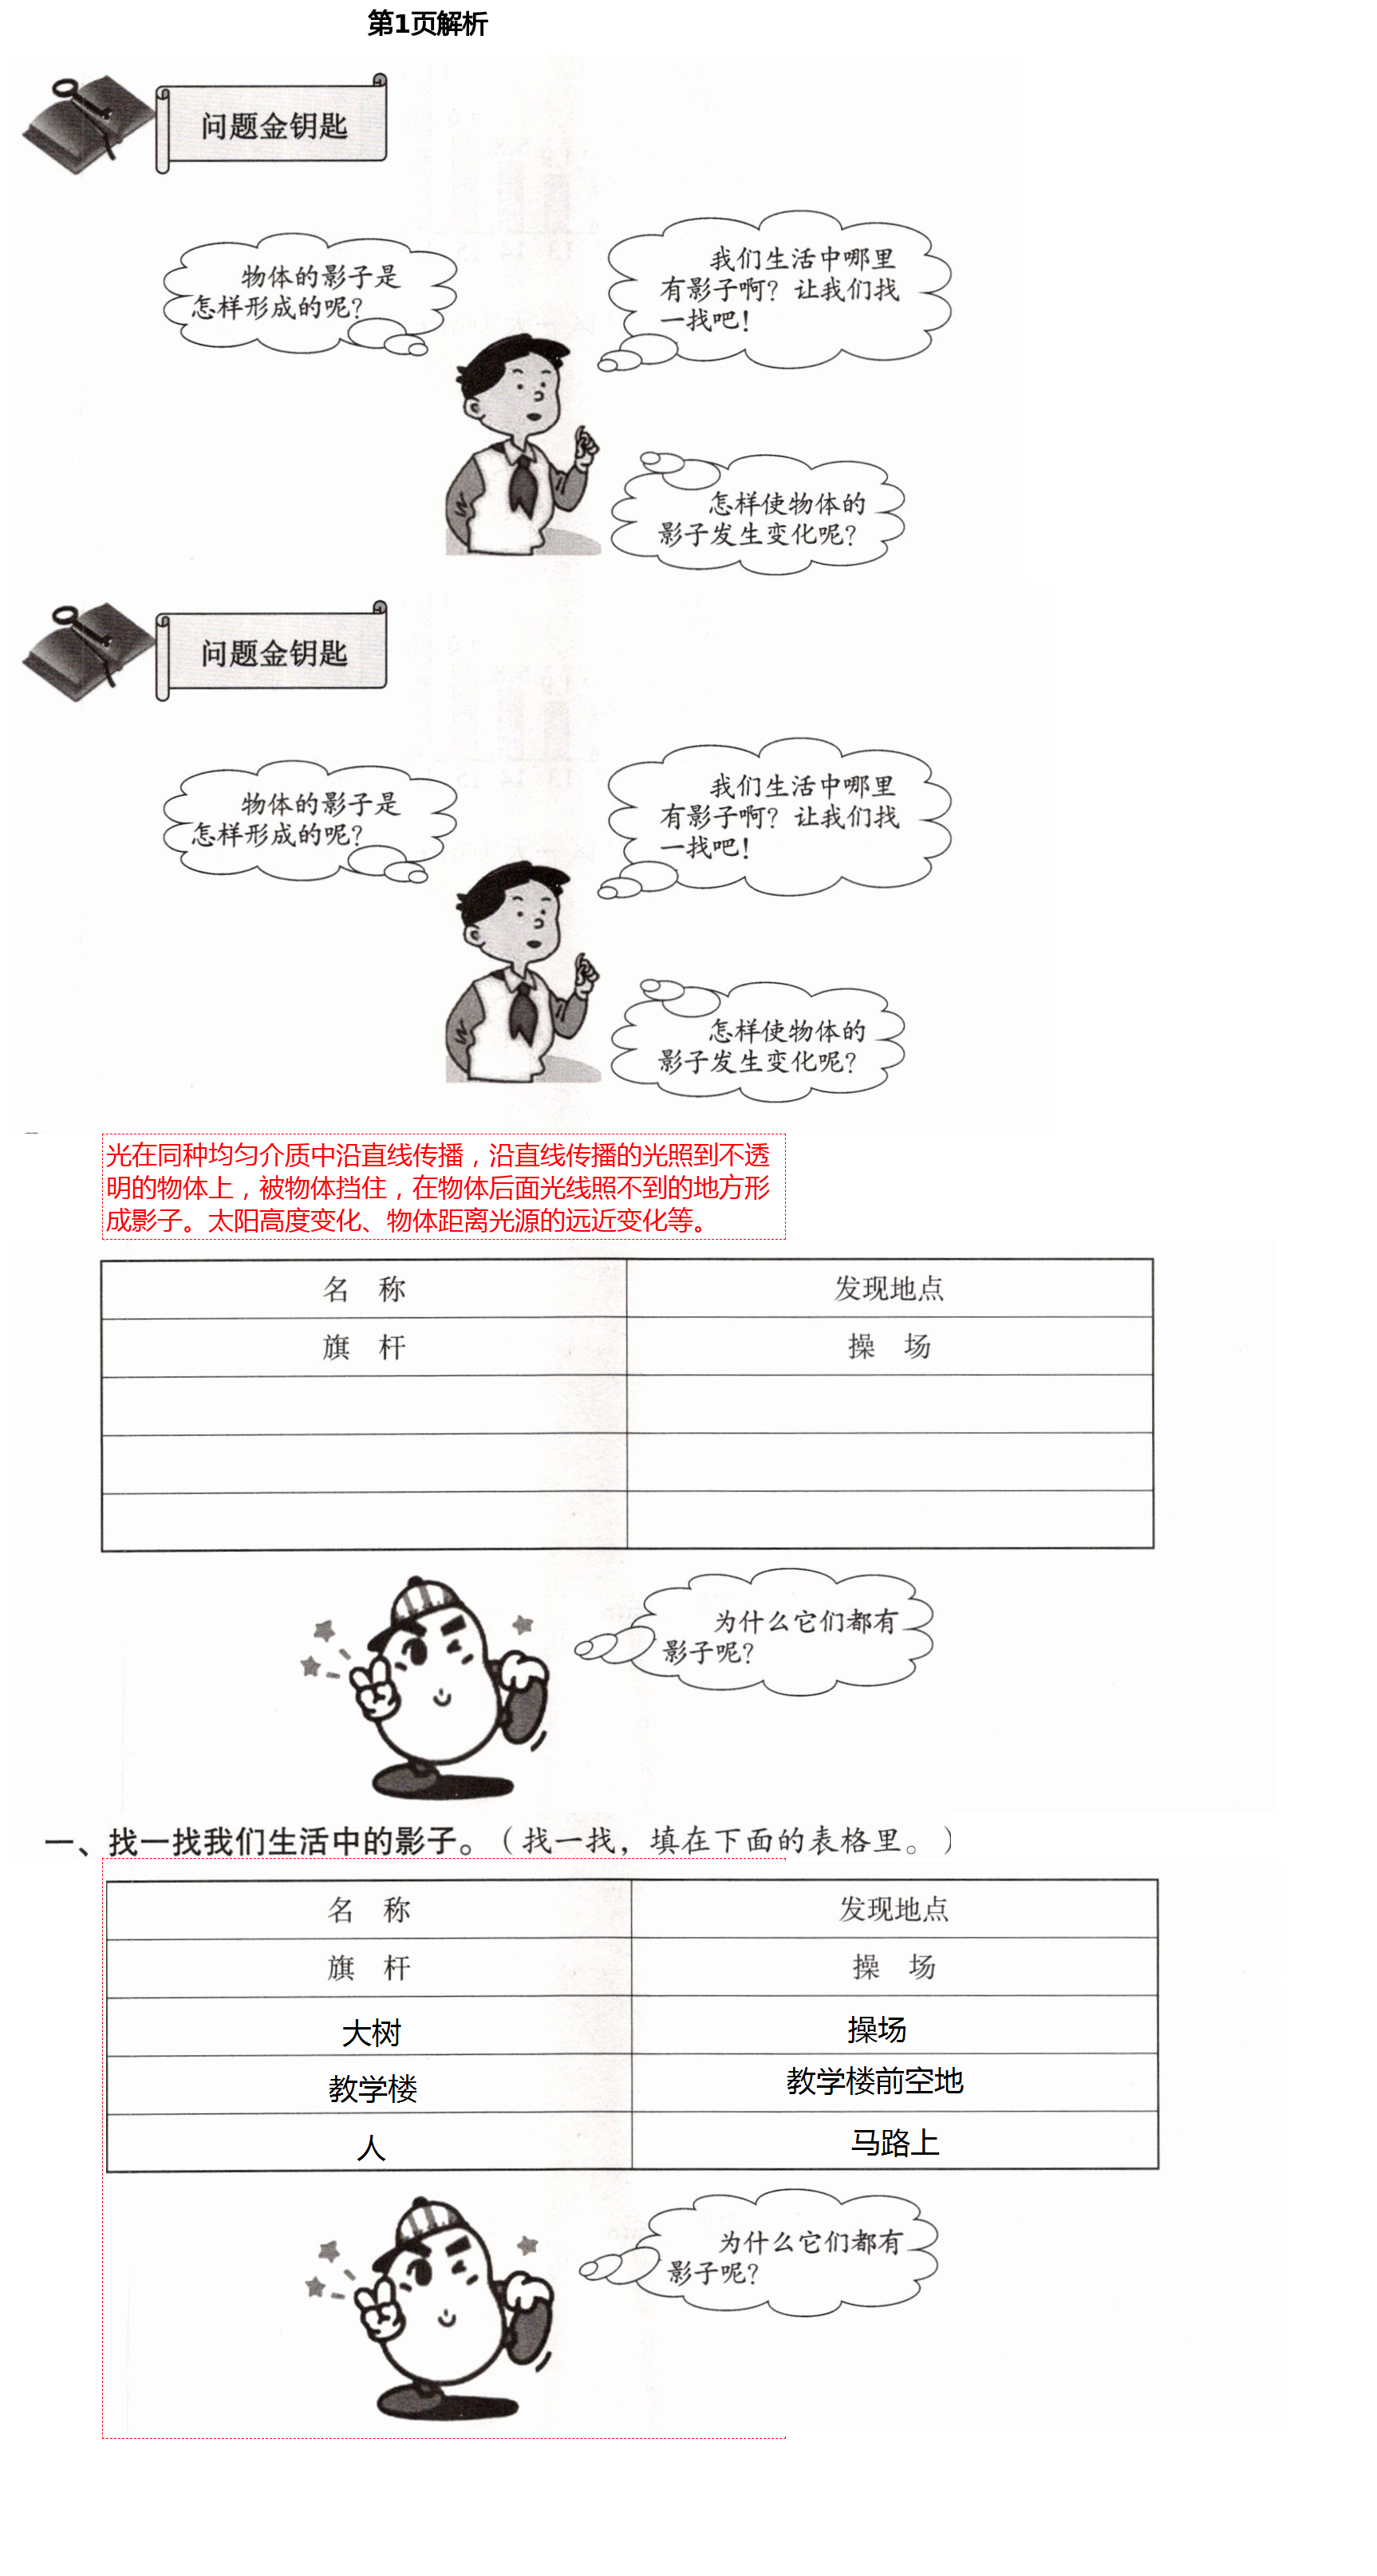 第1页解析
问题金钥匙
物体的影子是
怎样形成的呢？
我们生活中哪里
有影子啊？让我们找
一找吧！
怎样使物体的
影子发生变化呢？
问题金钥匙
物体的影子是
怎样形成的呢？
我们生活中哪里
有影子啊？让我们找
一找吧！
怎样使物体的
影子发生变化呢？
光在同种均匀介质中沿直线传播，沿直线传播的光照到不透
明的物体上，被物体挡住，在物体后面光线照不到的地方形
成影子。太阳高度变化、物体距离光源的远近变化等。
名 称 发现地点
旗 杆 操 场
为什么它们都有
影子呢？
一、找一找我们生活中的影子。（找一找，填在下面的表格里。）
名 称 发现地点
旗 杆 操 场
大树 操场
教学楼 教学楼前空地
人 马路上
为什么它们都有
影子呢？